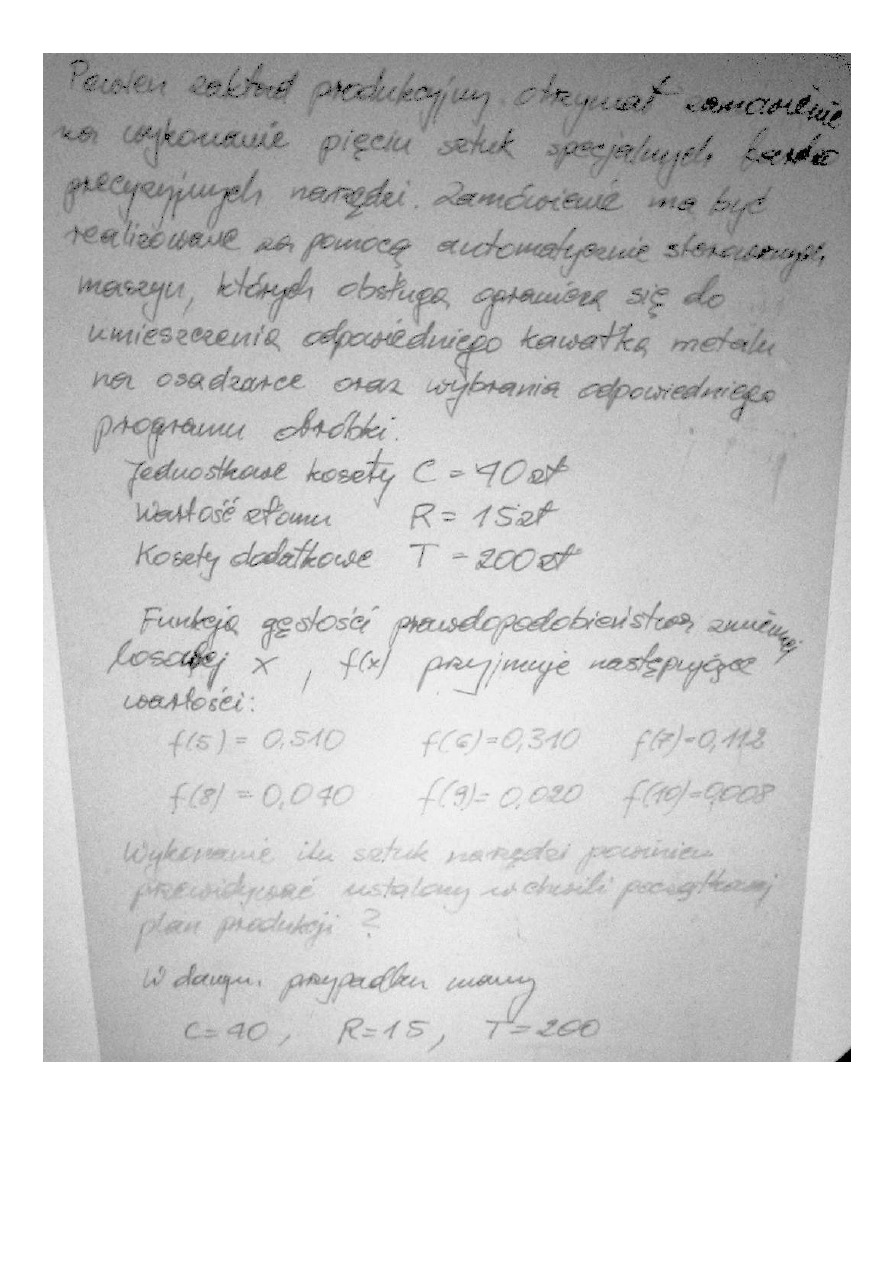 Pewien zakład produkcyjny otrzymał zamówienie
na wykonanie pięciu sztuk specjalnych bardzo
precyzyjnych narzędzi. Zamówienie ma być
realizowane za pomocą automatycznie sterowanych
maszyn, których obsługa ogranicza się do
umieszczenia odpowiedniego kawałka metalu
na osadzarce oraz wybrania odpowiedniego
programu obróbki.
Jednostkowe koszty C = 40 zł
Wartość złomu R = 15 zł
Koszty dodatkowe T = 200 zł
Funkcja gęstości prawdopodobieństwa zmiennej
losowej x, f(x) przyjmuje następujące
wartości:
f(5) = 0,510 f(6)=0,310 f(7)=0,112
f(8) = 0,040 f(9)= 0,020 f(10)=0,008
Wykonanie ilu sztuk narzędzi powinien
przewidywać ustalony w chwili początkowej
plan produkcji?
W danym przypadku mamy
C=40, R=15, T=200